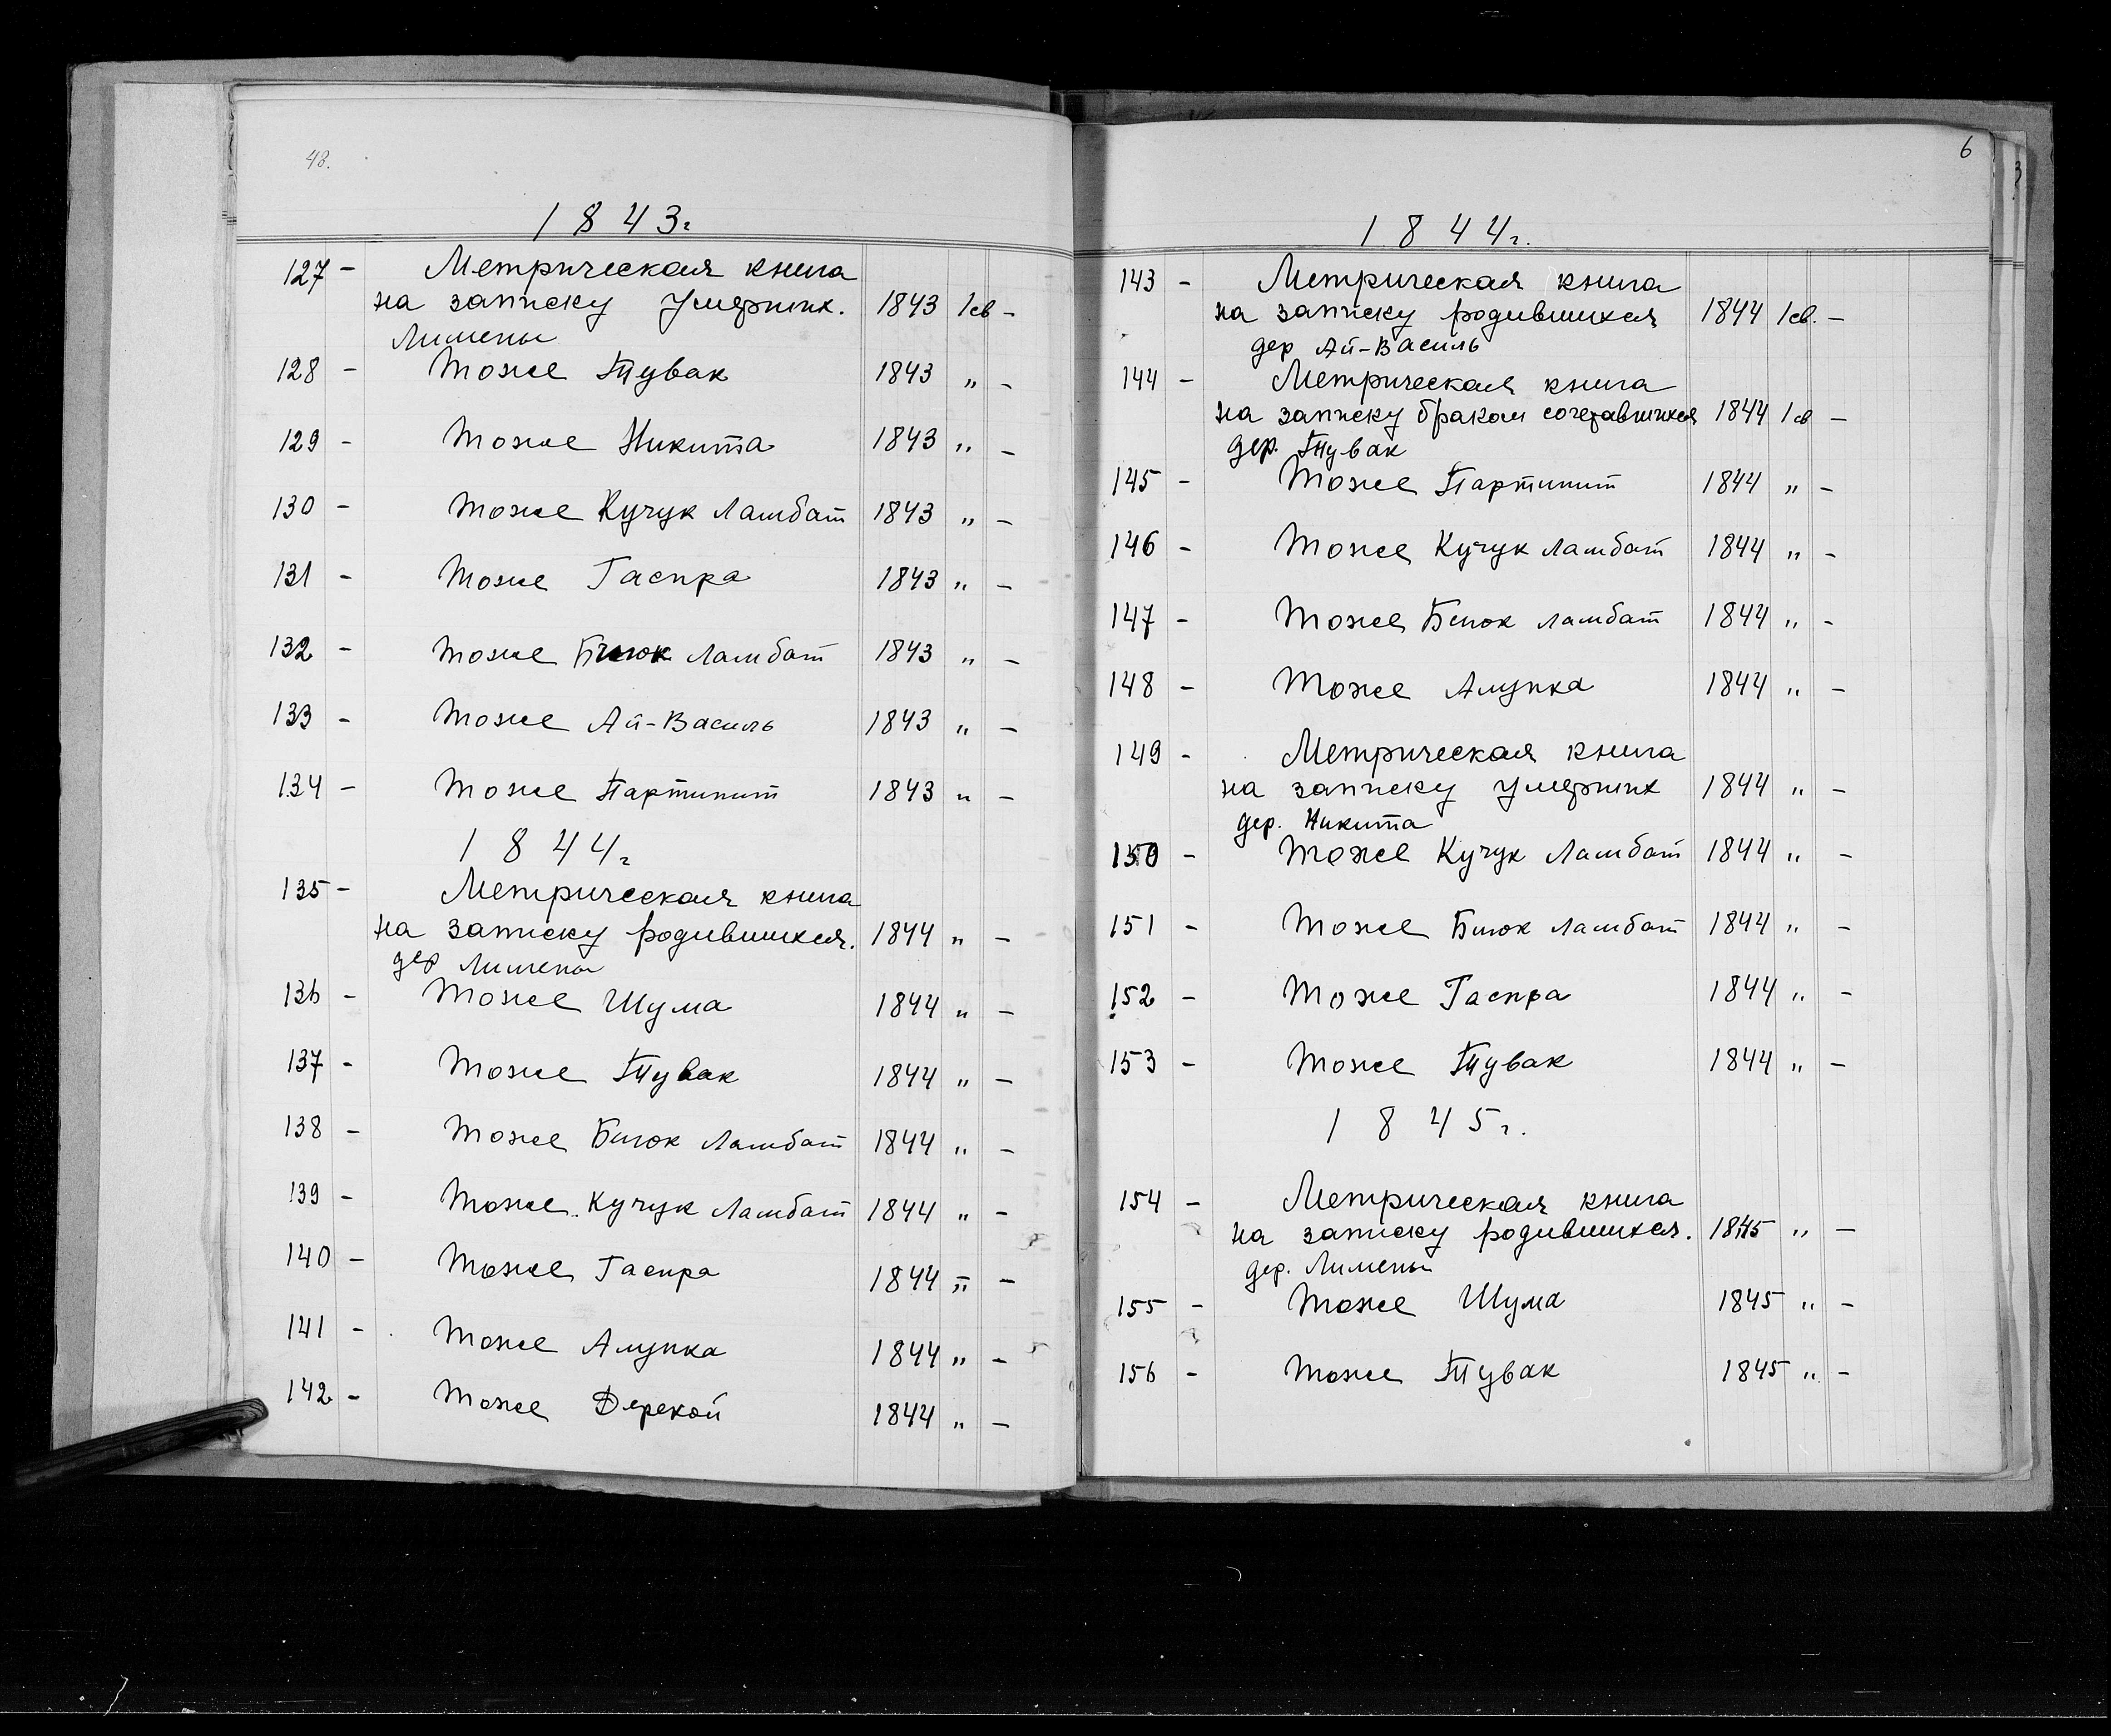 48.
1843г
127 - Метрическая книга
на записку умерших. 1843 1св -
Лимены
128 - Тоже Тувак 1843 " -
129 - Тоже Никита 1843 " -
130 - Тоже Кучук Ламбат 1843 " -
131 - Тоже Гаспра 1843 " -
132 - Тоже Биюк Ламбат 1843 " -
133 - Тоже Ай-Василь 1843 " -
134 - Тоже Партинит 1843 " -
1844г
135 - Метрическая книга
на записку родившихся. 1844 " -
дер Лимены
136 - Тоже Шума 1844 " -
137 - Тоже Тувак 1844 " -
138 - Тоже Биюк Ламбат 1844 " -
139 - Тоже Кучук Ламбат 1844 " -
140 - Тоже Гаспра 1844 " -
141 - Тоже Алупка 1844 " -
142 - Тоже Дерекой 1844 " -
6
1844г.
143 - Метрическая книга
на записку родившихся 1844 1св. -
дер Ай-Василь
144 - Метрическая книга
на записку браком сочетавшихся 1844 1св -
дер. Тувак
145 - Тоже Партинит 1844 " -
146 - Тоже Кучук Ламбат 1844 " -
147 - Тоже Биюк Ламбат 1844 " -
148 - Тоже Алупка 1844 " -
149 - Метрическая книга
на записку умерших 1844 " -
дер. Никита
150 - Тоже Кучук Ламбат 1844 " -
151 - Тоже Биюк Ламбат 1844 " -
152 - Тоже Гаспра 1844 " -
153 - Тоже Тувак 1844 " -
1845г.
154 - Метрическая книга
на записку родившихся. 1845 " -
дер. Лимены
155 - Тоже Шума 1845 " -
156 - Тоже Тувак 1845 " -